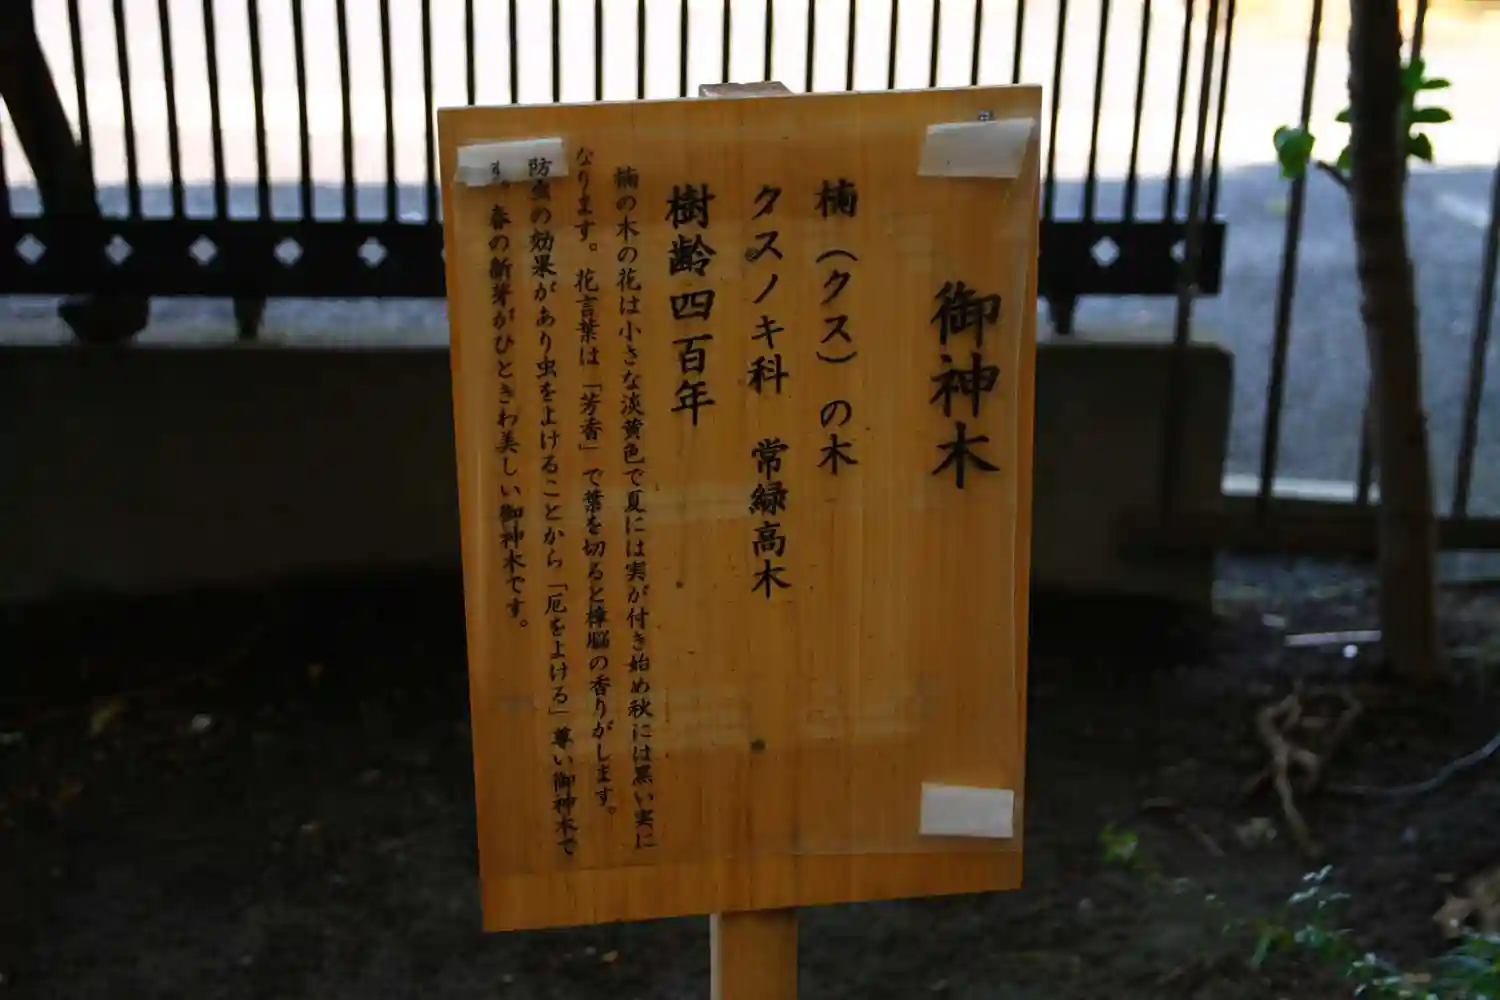 御神木
楠（クス）の木
クスノキ科　常緑高木
樹齢四百年
楠の木の花は小さな淡黄色で夏には実が付き始め秋には黒い実に
なります。花言葉は「芳香」で葉を切ると樟脳の香りがします。
防虫の効果があり虫をよけることから「厄をよける」尊い御神木で
す。春の新芽がひときわ美しい御神木です。